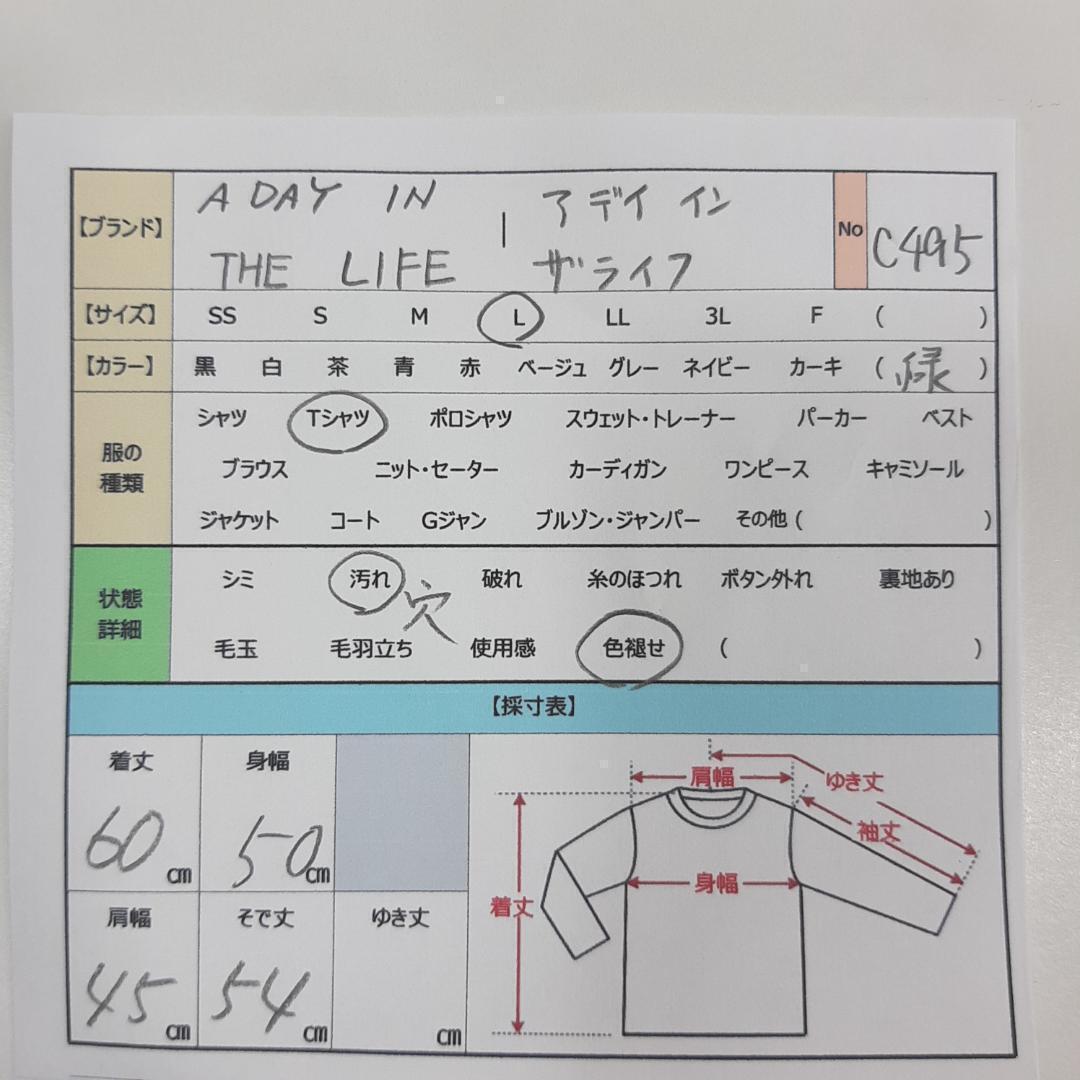 【ブランド】 A DAY IN | アデイ イン No C495
THE LIFE ザライフ
【サイズ】 SS S M L LL 3L F ( )
【カラー】 黒 白 茶 青 赤 ベージュ グレー ネイビー カーキ ( 緑 )
服の種類
シャツ Tシャツ ポロシャツ スウェット・トレーナー パーカー ベスト
ブラウス ニット・セーター カーディガン ワンピース キャミソール
ジャケット コート Gジャン ブルゾン・ジャンパー その他 ( )
状態詳細
シミ 汚れ 穴 破れ 糸のほつれ ボタン外れ 裏地あり
毛玉 毛羽立ち 使用感 色褪せ ( )
【採寸表】
着丈 身幅
60 cm 50 cm
肩幅 そで丈 ゆき丈
45 cm 54 cm cm
肩幅 ゆき丈
袖丈
身幅
着丈